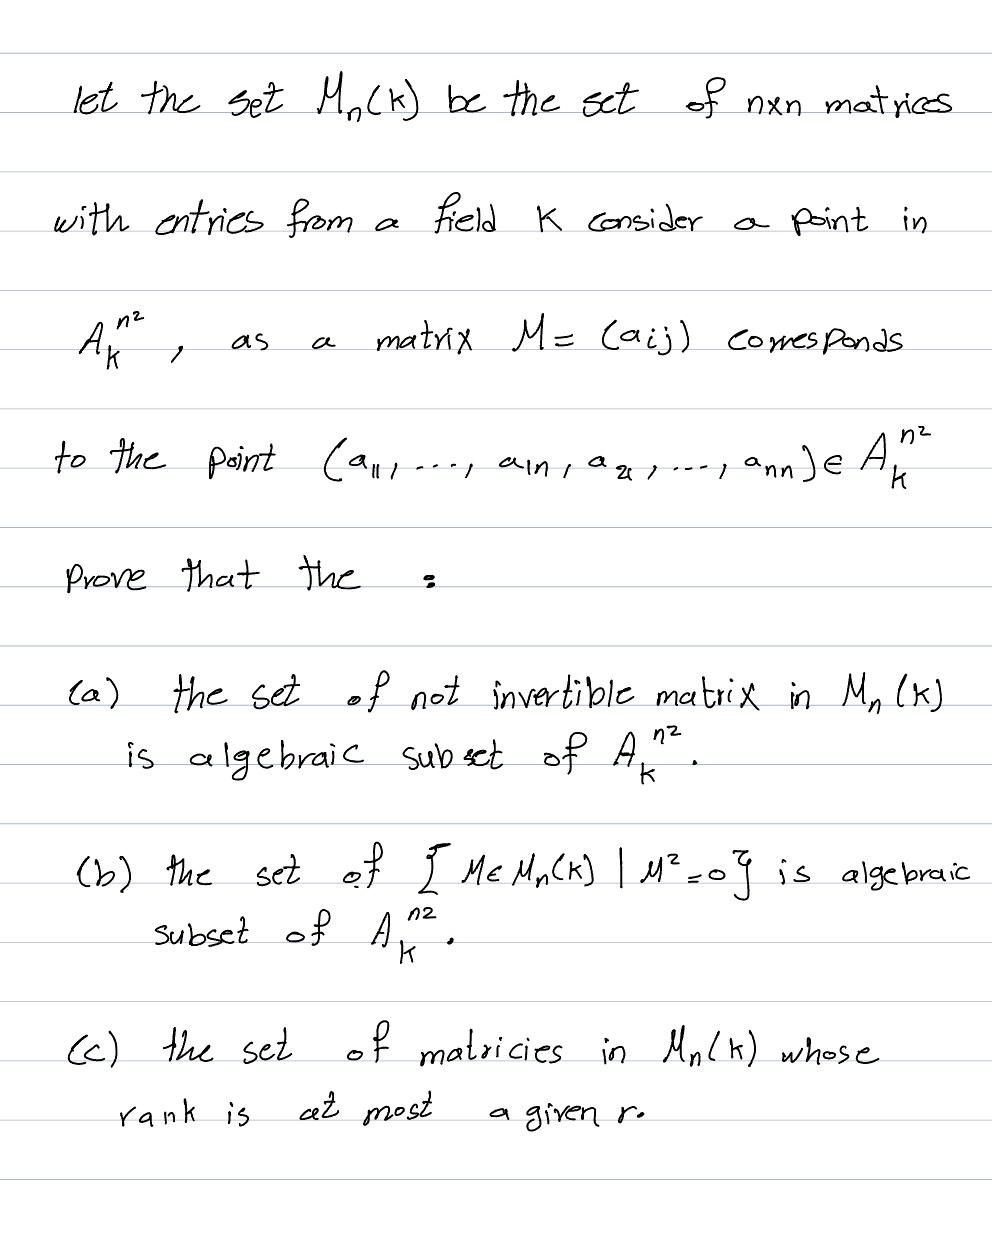 let the set Mₙ(k) be the set of nxn matrices
with entries from a field K consider a point in
Aₖⁿ², as a matrix M = (aij) corresponds
to the point (a₁₁, ..., a₁n, a₂₁, ..., ann) ∈ Aₖⁿ²
Prove that the :
(a) the set of not invertible matrix in Mₙ(k)
is algebraic subset of Aₖⁿ².
(b) the set of { M ∈ Mₙ(k) | M² = 0 } is algebraic
subset of Aₖⁿ².
(c) the set of matricies in Mₙ(k) whose
rank is at most a given r.